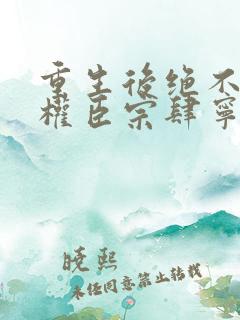 重生後绝不
權臣宗肆寧
晓熙
未经同意禁止转载